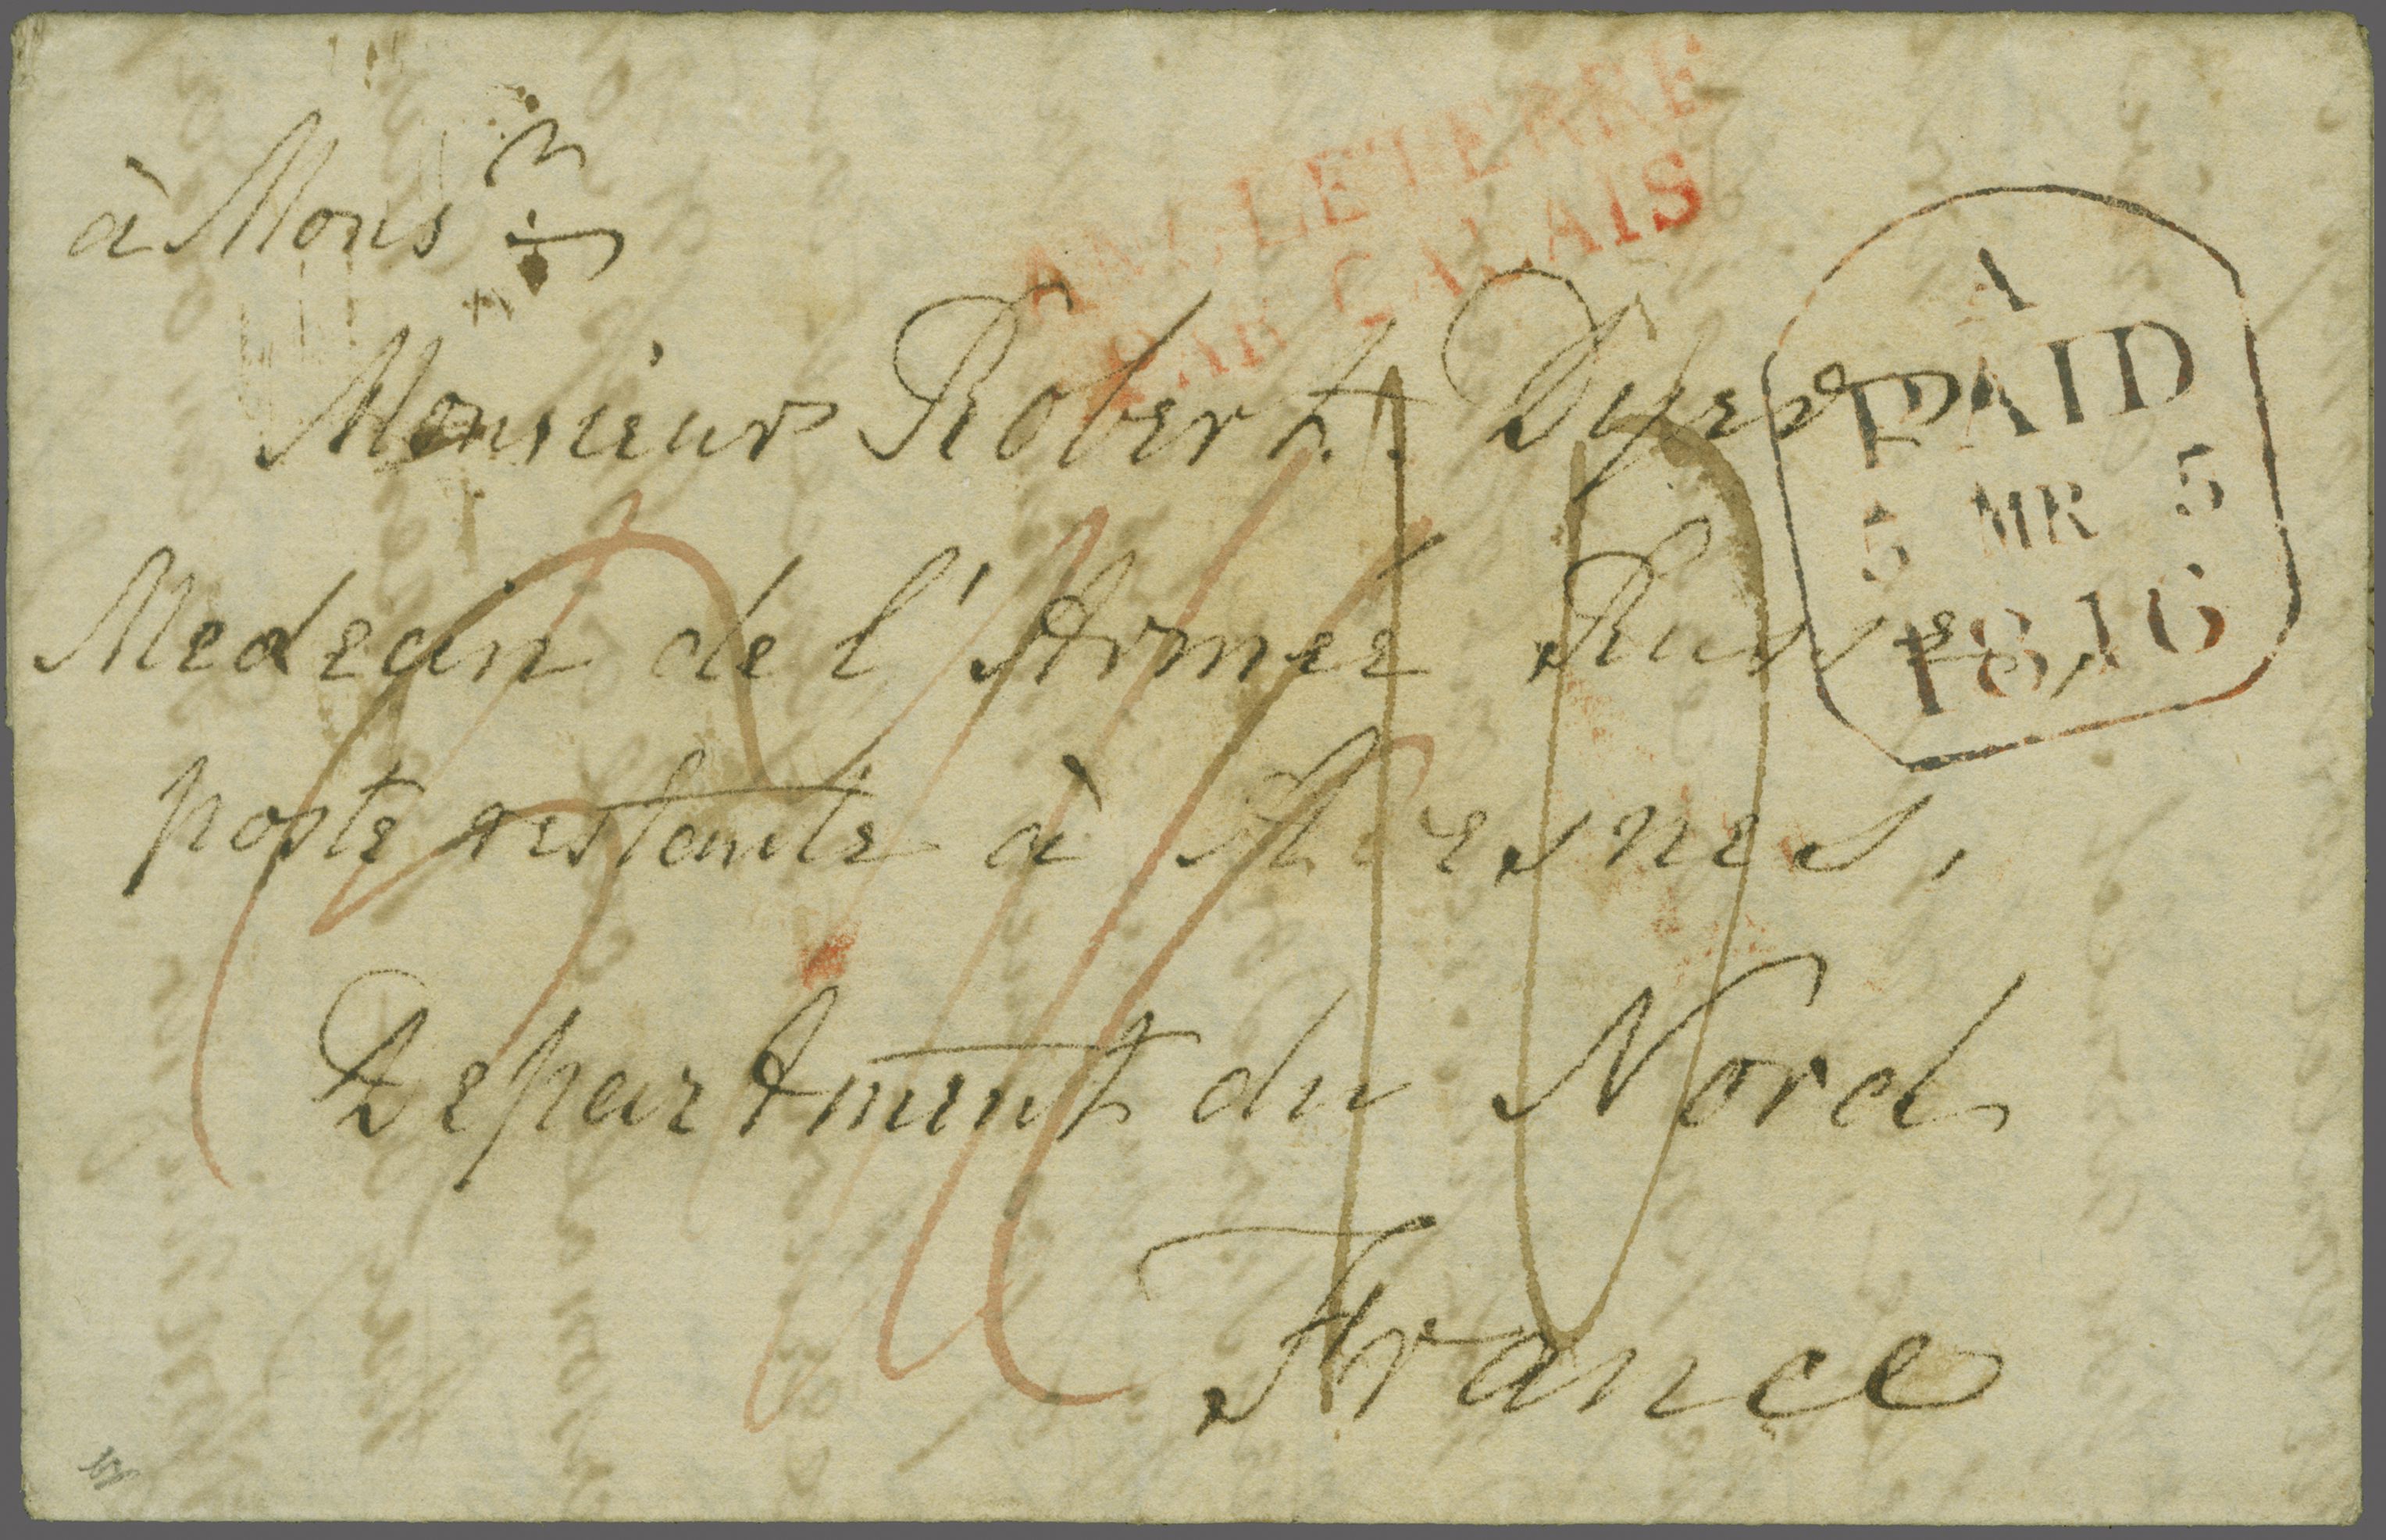 à Mons
ANGLETERRE
PAR CALAIS
A
PAID
5 MR 5
1816
Monsieur Robert. Dyer
Medecin de l'Armee Russe,
poste restante à Avesnes,
Department du Nord
France
10